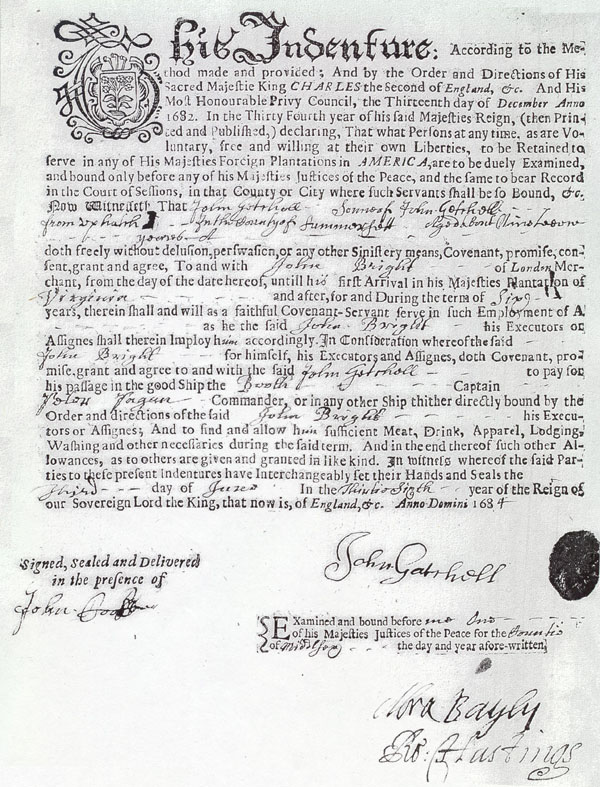 This Indenture: According to the Me-
thod made and provided; And by the Order and Directions of His
Sacred Majestie King CHARLES the Second of England, &c. And His
Most Honourable Privy Council, the Thirteenth day of December Anno
1682. In the Thirty Fourth year of his said Majesties Reign, (then Prin-
ted and Published,) declaring, That what Persons at any time, as are Vo-
luntary, free and willing at their own Liberties, to be Retained to
serve in any of His Majesties Foreign Plantations in AMERICA, are to be duely Examined,
and bound only before any of his Majesties Justices of the Peace, and the same to bear Record
in the Court of Sessions, in that County or City where such Servants shall be so Bound, &c.
Now Witnesseth That John Getchell Sonne of John Getchell
from In the County of Summersett Aged about Nineteene
yeares
doth freely without delusion, perswasion, or any other Sinistery means, Covenant, promise, con-
sent, grant and agree, To and with John Bright of London Mer-
chant, from the day of the date hereof, until his first Arrival in his Majesties Plantation of
Virginia and after, for and During the term of
years, therein shall and will as a faithful Covenant-Servant serve in such Employment of A
as he the said John Bright his Executors or
Assignes shall therein Imploy him accordingly. In Consideration whereof the said
John Bright for himself, his Executors and Assignes, doth Covenant, pro-
mise, grant and agree to and with the said John Getchell to pay for
his passage in the good Ship the Booth Captain
Peter Pagen Commander, or in any other Ship thither directly bound by the
Order and directions of the said John Bright his Execu-
tors or Assignes, And to find and allow him sufficient Meat, Drink, Apparel, Lodging,
Washing and other necessaries during the said term. And in the end thereof such other Al-
lowances, as to others are given and granted in like kind. In Witness whereof the said Par-
ties to these present Indentures have Interchangeably set their Hands and Seals the
third day of June In the Thirtie Sixth year of the Reign of
our Sovereign Lord the King, that now is, of England, &c. Anno Domini 1684
Signed, Sealed and Delivered
in the presence of
John
John Gatchell
Examined and bound before me One
of his Majesties Justices of the Peace for the Countie
of Middlesex the day and year afore-written,
Bayly
Ro: Hastings